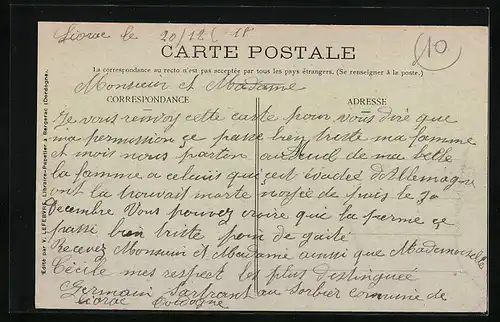 Liorac le 20/12/18
10
CARTE POSTALE
La correspondance au recto n'est pas acceptée par tous les pays étrangers. (Se renseigner à la poste.)
Monsieur et Madame
CORRESPONDANCE
ADRESSE
Je vous renvoy cette carte pour vous diré que
ma permission ce passe bien triste ma famme
et mois nous parton au Deuil de ma belle
la famme a celuis qui est evadés d'Allemagne
ont la trouvait morte noyée de puis le 70
Décembre Vous pouvez croire que la ferme ce
passe bien triste poin de gaité
Recevez Monsieur et Madame ainsi que Mademoiselle
Cécile mes respect les plus distinguée
Germain au Sorbier commune de
Liorac Dodogne
Edité par V. LEFEBVRE, Libraire-Papetier à Bergerac (Dordogne).